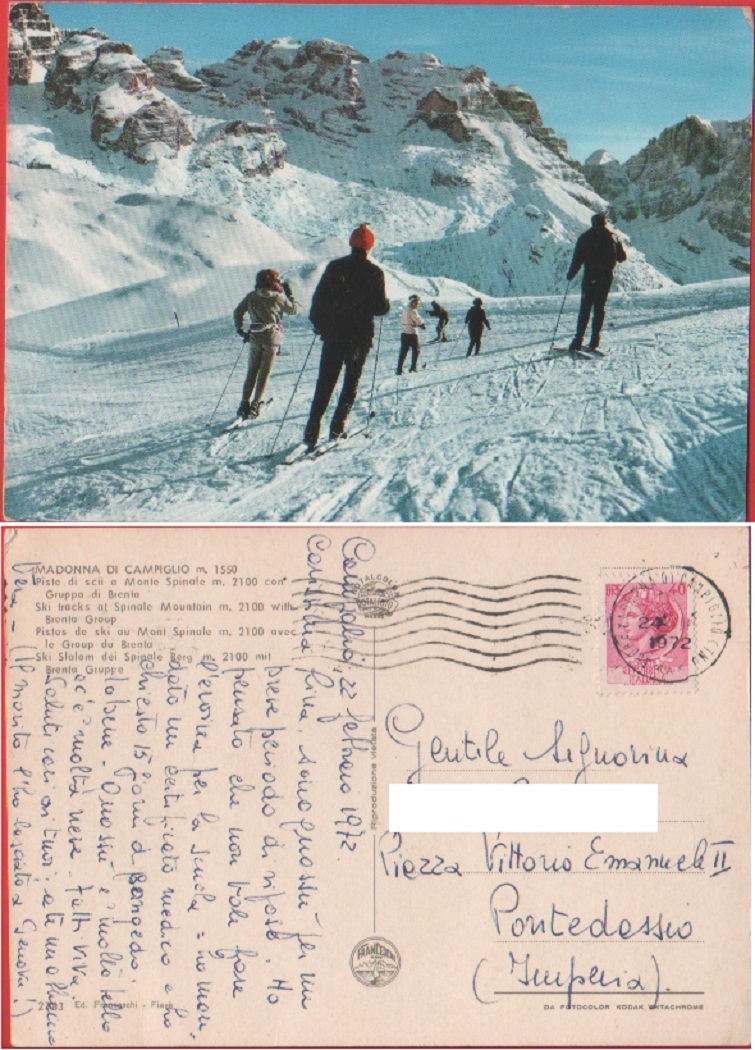 MADONNA DI CAMPIGLIO m. 1550
Piste di scii a Monte Spinale m. 2100 con
Gruppo di Brenta
Ski tracks at Spinale Mountain m. 2100 with
Brenta Group
Pistes de ski au Mont Spinale m. 2100 avec
le Group du Brenta
Ski Slalom dei Spinale Berg m. 2100 mit
Brenta Gruppe
Campiglio, 22 febbraio 1972.
Carissima Lina, sono quassù per un
breve periodo di riposo. Ho
pensato che non vale fare
l'eroina per la scuola = ho man-
dato un certificato medico e ho
chiesto 15 giorni di congedo.
Fo bene. Quassù è molto bello
e c'è molta neve. Fatti viva.
Saluti cari ai tuoi; a te un
Vera - (Il marito l'ho lasciato a Genova!)
Riproduzione vietata
ITALCOLOR
FRANCESCHI
40
MADONNA DI CAMPIGLIO
1972
Gentile Signorina
Piazza Vittorio Emanuele II
Pontedassio
(Imperia).
Ed. Franceschi - Fiera
DA FOTOCOLOR KODAK EKTACHROME